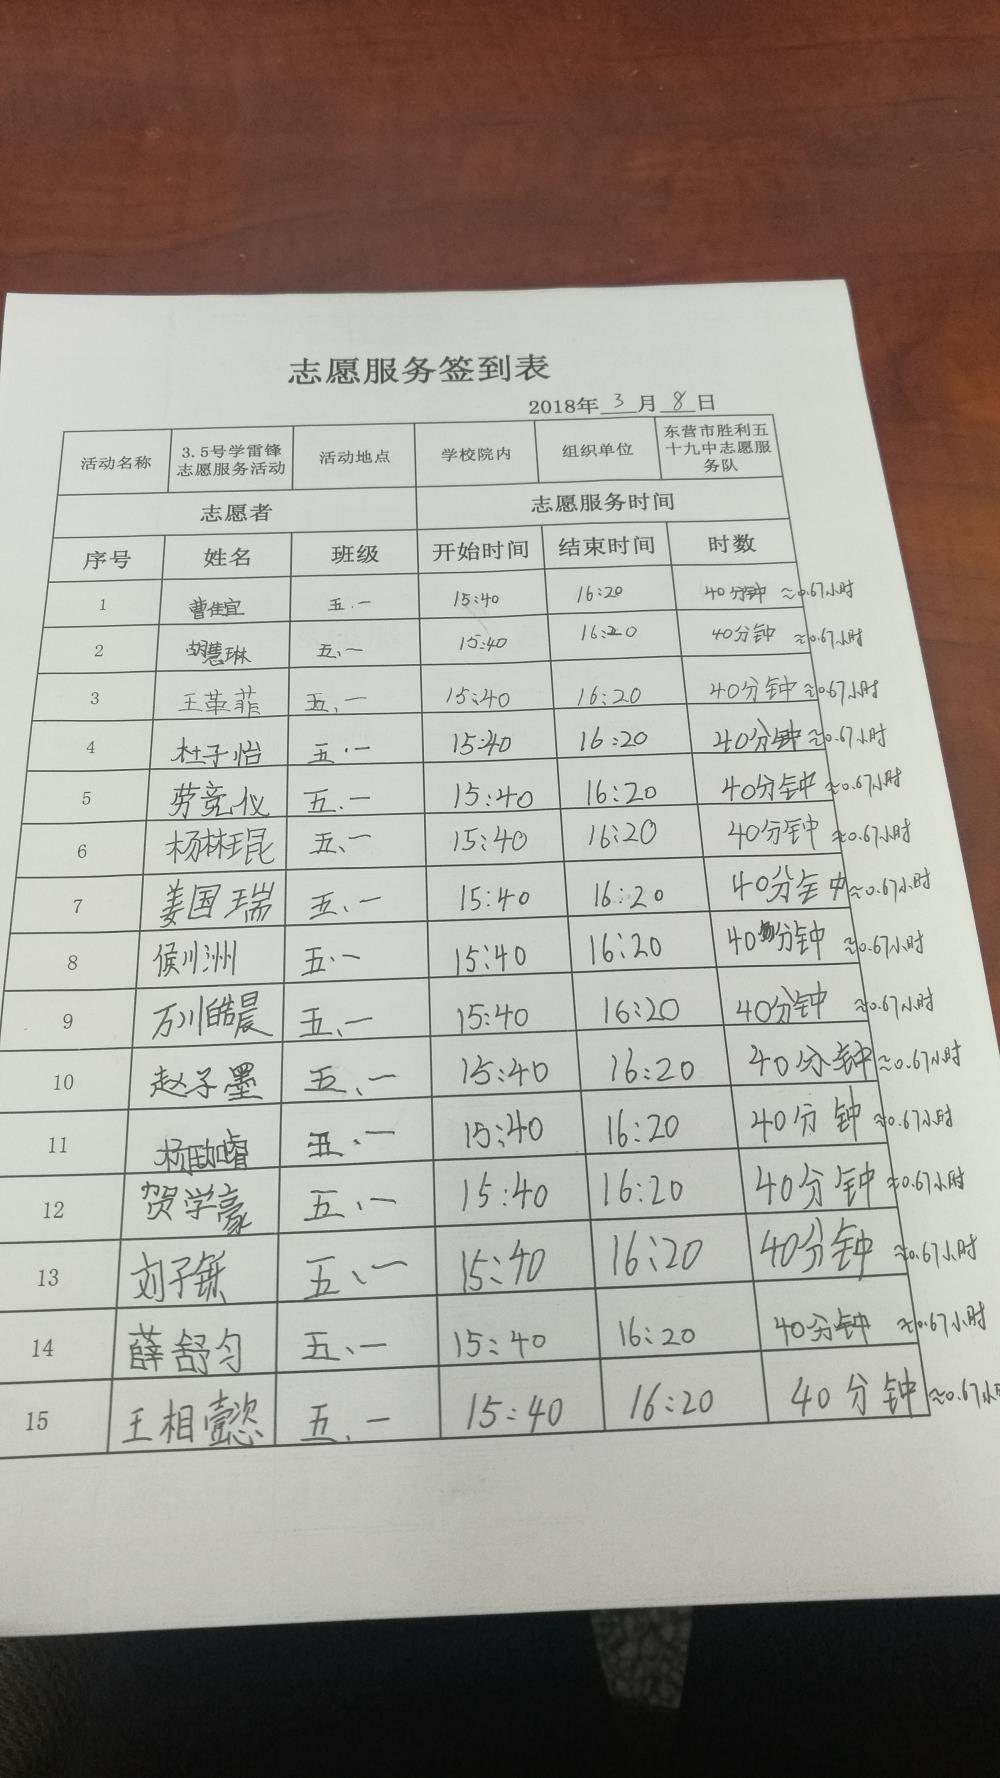 志愿服务签到表
2018年 3 月 8 日
活动名称 3.5号学雷锋志愿服务活动 活动地点 学校院内 组织单位 东营市胜利五十九中志愿服务队
志愿者 志愿服务时间
序号 姓名 班级 开始时间 结束时间 时数
1 曹佳宜 五.一 15:40 16:20 40分钟 ≈0.67小时
2 胡慧琳 五、一 15:40 16:20 40分钟 ≈0.67小时
3 王革菲 五、一 15:40 16:20 40分钟 ≈0.67小时
4 杜子怡 五.一 15:40 16:20 40分钟 ≈0.67小时
5 劳竞仪 五.一 15:40 16:20 40分钟 ≈0.67小时
6 杨林琨 五、一 15:40 16:20 40分钟 ≈0.67小时
7 姜国瑞 五、一 15:40 16:20 40分钟 ≈0.67小时
8 侯川洲 五.一 15:40 16:20 40分钟 ≈0.67小时
9 万川皓晨 五、一 15:40 16:20 40分钟 ≈0.67小时
10 赵子墨 五、一 15:40 16:20 40分钟 ≈0.67小时
11 五、一 15:40 16:20 40分钟 ≈0.67小时
12 贺学豪 五、一 15:40 16:20 40分钟 ≈0.67小时
13 五、一 15:40 16:20 40分钟 ≈0.67小时
14 薛舒匀 五、一 15:40 16:20 40分钟 ≈0.67小时
15 王相懿 五.一 15:40 16:20 40分钟 ≈0.67小时